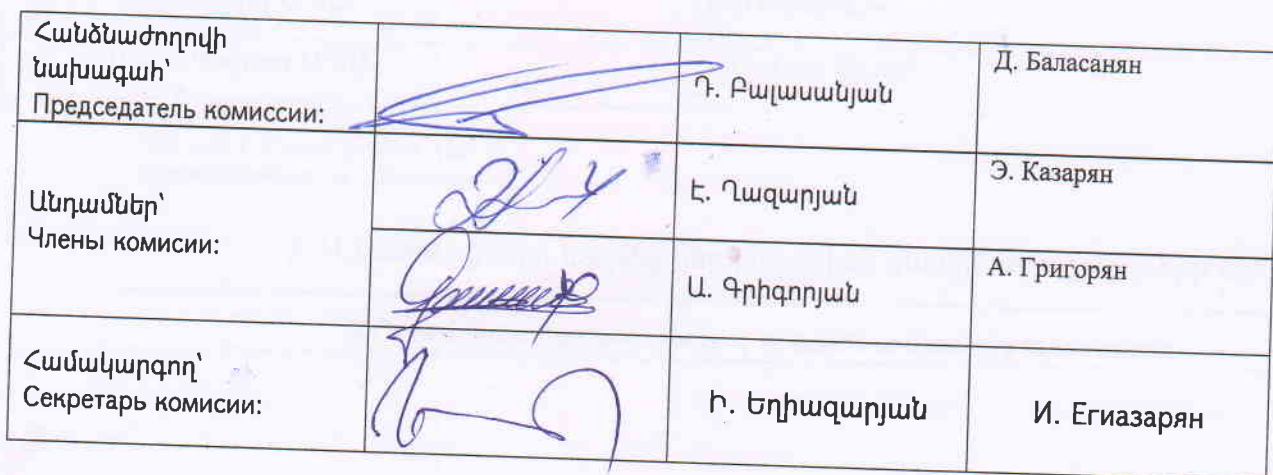 Հանձնաժողովի
նախագահ՝
Председатель комиссии:
Դ. Բալասանյան
Д. Баласанян
Անդամներ՝
Члены комисии:
Է. Ղազարյան
Э. Казарян
Ա. Գրիգորյան
А. Григорян
Համակարգող՝
Секретарь комисии:
Ի. Եղիազարյան
И. Егиазарян